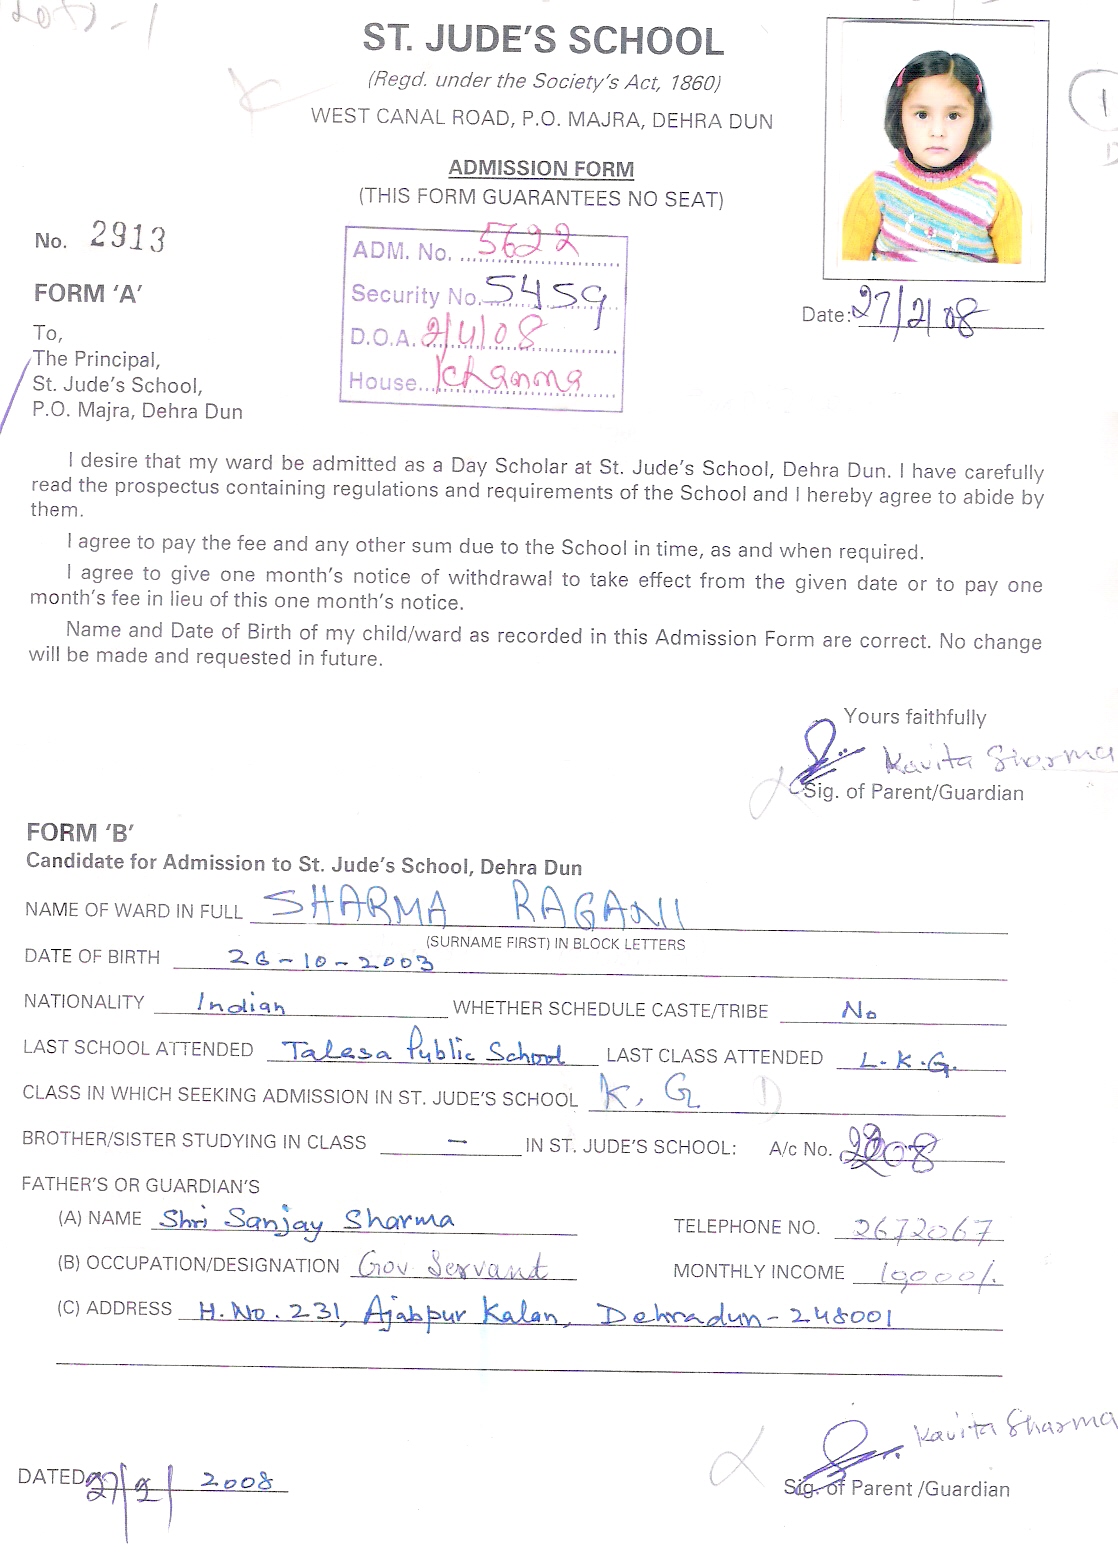 ST. JUDE'S SCHOOL
(Regd. under the Society's Act, 1860)
WEST CANAL ROAD, P.O. MAJRA, DEHRA DUN
ADMISSION FORM
(THIS FORM GUARANTEES NO SEAT)
No. 2913
ADM. No. 5622
Security No. 5459
D.O.A. 2/4/08
House Khanna
Date: 27/2/08
FORM 'A'
To,
The Principal,
St. Jude's School,
P.O. Majra, Dehra Dun
I desire that my ward be admitted as a Day Scholar at St. Jude's School, Dehra Dun. I have carefully
read the prospectus containing regulations and requirements of the School and I hereby agree to abide by
them.
I agree to pay the fee and any other sum due to the School in time, as and when required.
I agree to give one month's notice of withdrawal to take effect from the given date or to pay one
month's fee in lieu of this one month's notice.
Name and Date of Birth of my child/ward as recorded in this Admission Form are correct. No change
will be made and requested in future.
Yours faithfully
Kavita Sharma
Sig. of Parent/Guardian
FORM 'B'
Candidate for Admission to St. Jude's School, Dehra Dun
NAME OF WARD IN FULL SHARMA RAGANI
(SURNAME FIRST) IN BLOCK LETTERS
DATE OF BIRTH 26-10-2003
NATIONALITY Indian WHETHER SCHEDULE CASTE/TRIBE No
LAST SCHOOL ATTENDED Talesa Public School LAST CLASS ATTENDED L.K.G.
CLASS IN WHICH SEEKING ADMISSION IN ST. JUDE'S SCHOOL K.G D
BROTHER/SISTER STUDYING IN CLASS — IN ST. JUDE'S SCHOOL: A/c No.
FATHER'S OR GUARDIAN'S
(A) NAME Shri Sanjay Sharma TELEPHONE NO. 2672067
(B) OCCUPATION/DESIGNATION Gov Servant MONTHLY INCOME 10,000/.
(C) ADDRESS H.No. 231, Ajabpur Kalan, Dehradun-248001
Kavita Sharma
DATED 27/2/ 2008
Sig. of Parent /Guardian